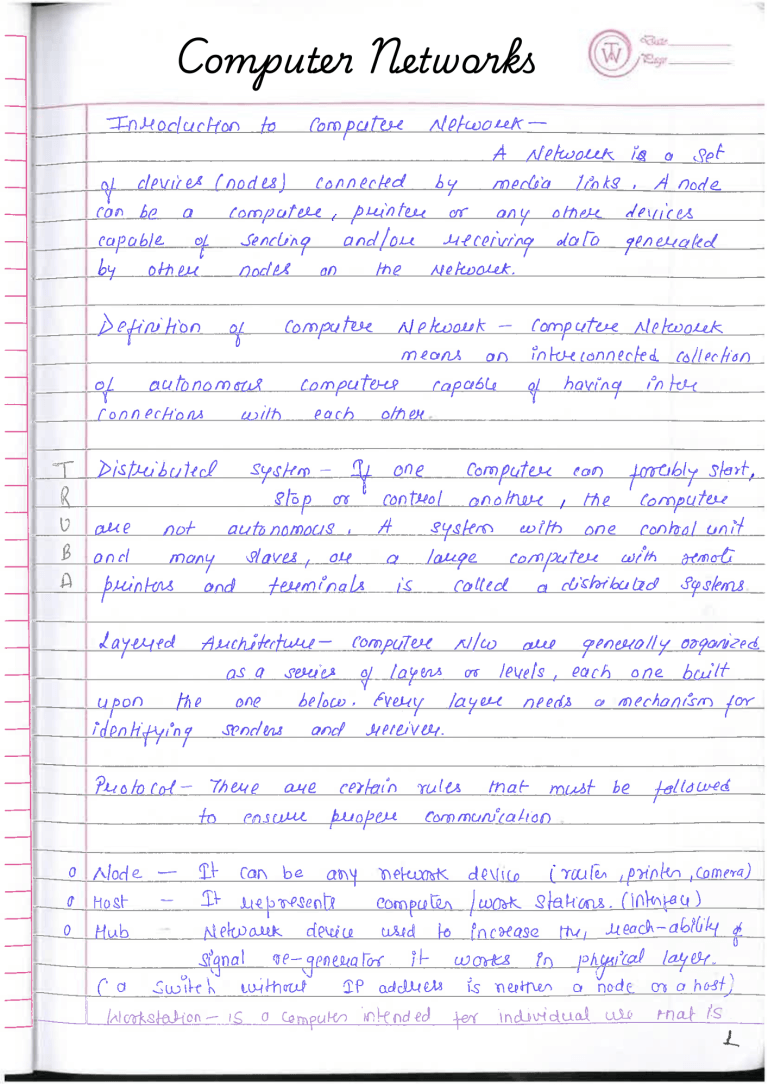 Computer Networks
Date
Page
TW
Introduction to Computer Network —
A Network is a set
of devices (nodes) connected by media links. A node
can be a computer, printer or any other devices
capable of sending and/or receiving data generated
by other nodes on the Network.
Definition of Computer Network — Computer Network
means an interconnected collection
of autonomous computers capable of having inter
connections with each other.
Distributed system — If one computer can forcibly start,
stop or control another, the computer
are not autonomous. A system with one control unit
and many slaves, or a large computer with remote
printers and terminals is called a distributed systems.
Layered Architecture — Computer N/w are generally organized
as a series of layers or levels, each one built
upon the one below. Every layer needs a mechanism for
identifying senders and receiver.
Protocol — There are certain rules that must be followed
to ensure proper communication.
o Node — It can be any network device (router, printer, camera)
o Host — It represents computer /work stations. (Interface)
o Hub — Network device used to increase the reach-ability &
signal re-generator it works in physical layer.
(a switch without IP address is neither a node or a host)
Workstation — is a computer intended for individual use that is
TRUBA
1